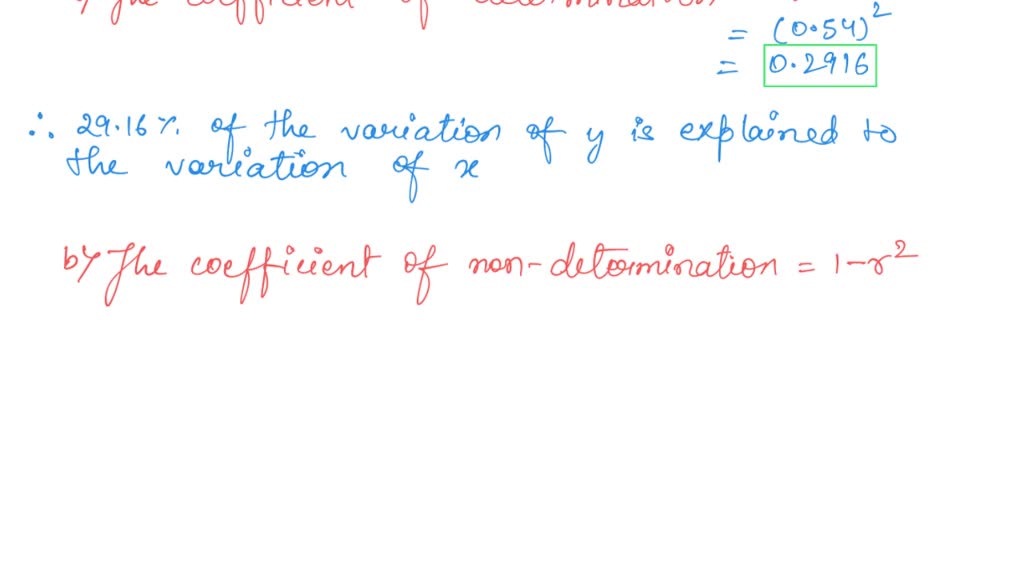 The coefficient of determination
= (0.54)²
= 0.2916
∴ 29.16% of the variation of y is explained to
the variation of x
b) The coefficient of non-determination = 1-r²